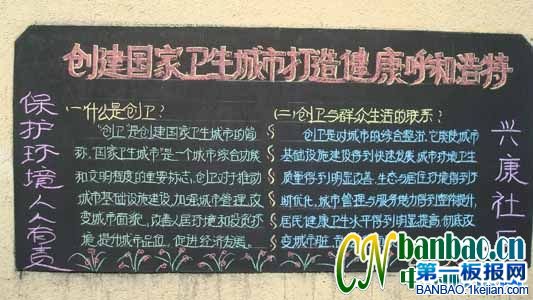 创建国家卫生城市打造健康呼和浩特
保护环境人人有责
一什么是创卫?
"创卫"是创建国家卫生城市的简
称,国家卫生城市是一个城市综合功能
和文明程度的重要标志,创卫对于推动
城市基础设施建设,加强城市管理,改
变城市面貌,改善人居环境和投资环
境,提升城市品位,促进经济发展.
(二)创卫与群众生活的联系?
创卫是对城市的综合整治,它能使城市
基础设施建设得到快速发展,城市环境卫生
质量得到明显改善,生态与居住环境得到
优化,城市管理与服务得到整体提升,
居民健康卫生水平得到明显提高,彻底改
变城市脏
兴康社区
CN banbao.cn
第一板报网
BANBAO.1kejian.com